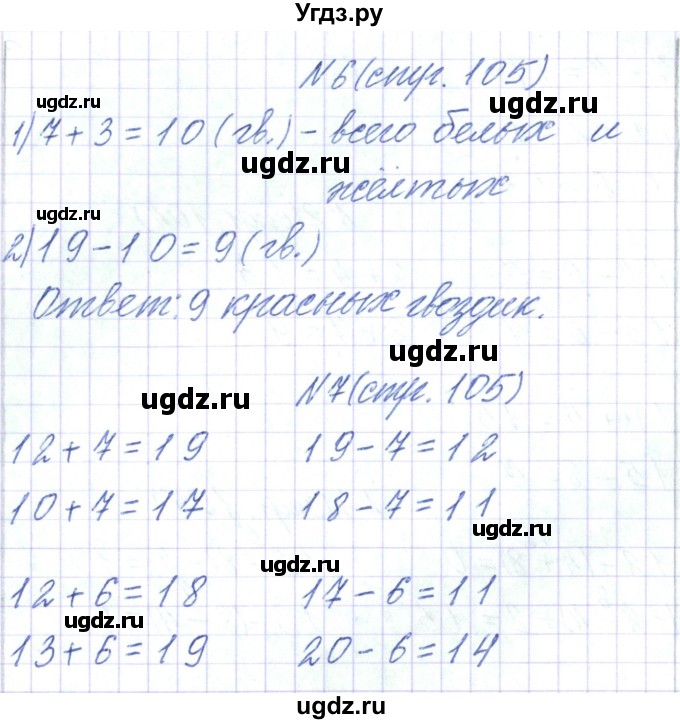 Угдз.ру
№6 (стр. 105)
ugdz.ru
ugdz.ru
1) 7 + 3 = 10 (гв.) – всего белых и
ugdz.ru
жёлтых
ugdz.ru
2) 19 – 10 = 9 (гв.)
Ответ: 9 красных гвоздик.
ugdz.ru
№7 (стр. 105)
ugdz.ru
12 + 7 = 19 19 – 7 = 12
10 + 7 = 17 18 – 7 = 11
ugdz.ru
ugdz.ru
12 + 6 = 18 17 – 6 = 11
ugdz.ru
13 + 6 = 19 20 – 6 = 14
ugdz.ru